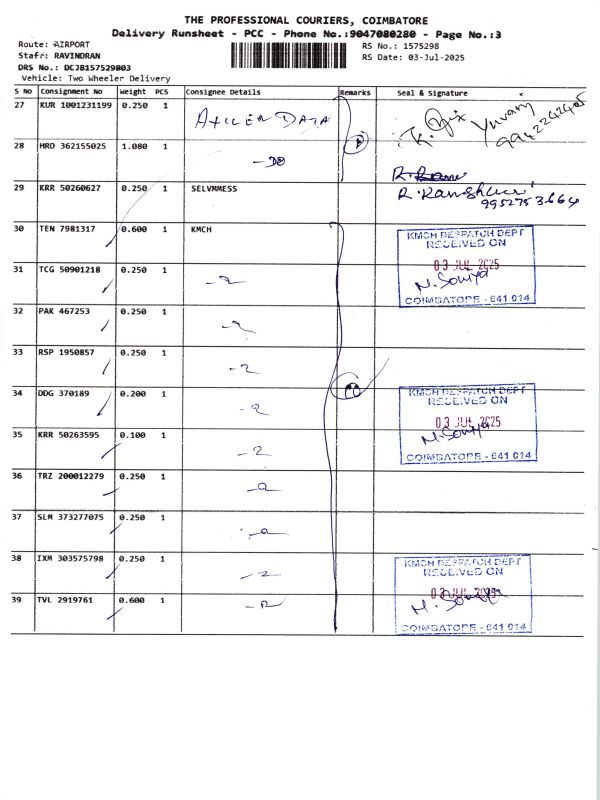 THE PROFESSIONAL COURIERS, COIMBATORE
Delivery Runsheet - PCC - Phone No.:9047080280 - Page No.:3
Route: AIRPORT
Staff: RAVINDRAN
DRS No.: DCJB157529803
Vehicle: Two Wheeler Delivery
RS No.: 1575298
RS Date: 03-Jul-2025
S No Consignment No Weight PCS Consignee Details Remarks Seal & Signature
27 KUR 1001231199 0.250 1
28 HRD 362155025 1.080 1
29 KRR 50260627 0.250 1 SELVMMESS
9952753664
30 TEN 7981317 0.600 1 KMCH
KMCH DESPATCH DEPT
RECEIVED ON
03 JUL 2025
N. Soniya
COIMBATORE - 641 014
31 TCG 50901218 0.250 1
32 PAK 467253 0.250 1
33 RSP 1950857 0.250 1
34 DDG 370189 0.200 1
KMCH DESPATCH DEPT
RECEIVED ON
03 JUL 2025
N. Soniya
COIMBATORE - 641 014
35 KRR 50263595 0.100 1
36 TRZ 200012279 0.250 1
37 SLM 373277075 0.250 1
38 IXM 303575798 0.250 1
KMCH DESPATCH DEPT
RECEIVED ON
03 JUL 2025
N. Soniya
COIMBATORE - 641 014
39 TVL 2919761 0.600 1